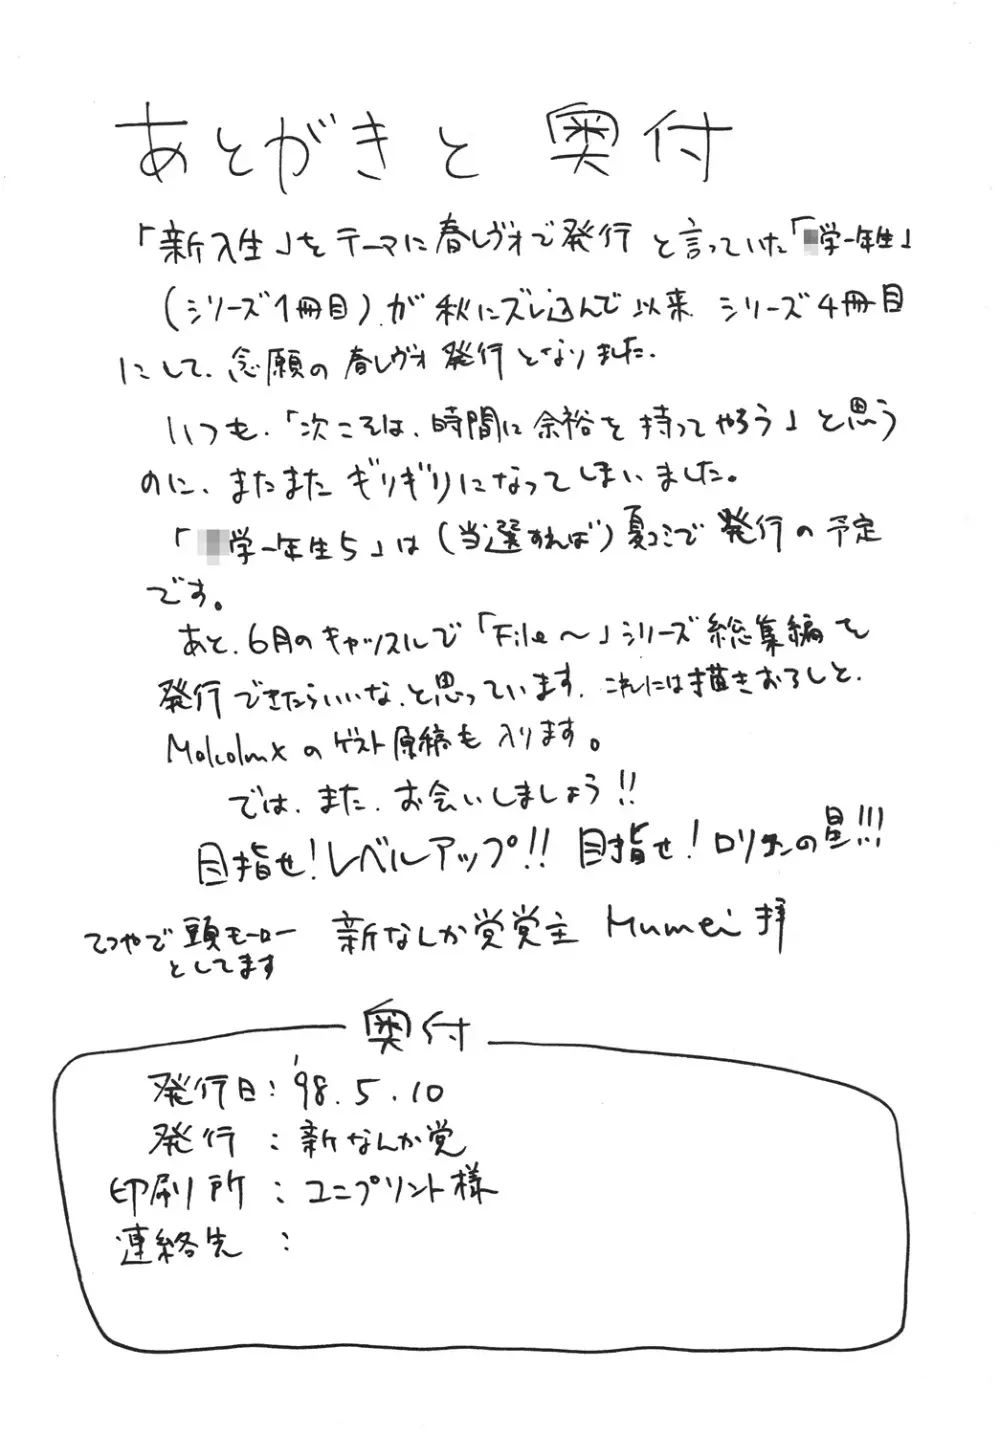 あとがきと 奥付
「新入生」をテーマに春レヴォで発行と言っていた「学一年生」
(シリーズ1冊目)が秋にズレ込んで以来 シリーズ4冊目
にして、念願の春レヴォ発行となりました.
いつも、「次こそは、時間に余裕を持ってやろう」と思う
のに、またまたギリギリになってしまいました。
「学一年生5」は(当選すれば)夏コミで発行の予定
です。
あと、6月のキャッスルで「File〜」シリーズ総集編を
発行できたらいいな、と思っています. これには描きおろしと、
Malcolmxのゲスト原稿も入ります。
では、また、お会いしましょう!!
目指せ!レベルアップ!! 目指せ!ロリチンの星!!!
てつやで頭モーロー
としてます
新なんか党党主 Mumei 拝
奥付
発行日:'98.5.10
発行:新なんか党
印刷所:ユニプリント様
連絡先: